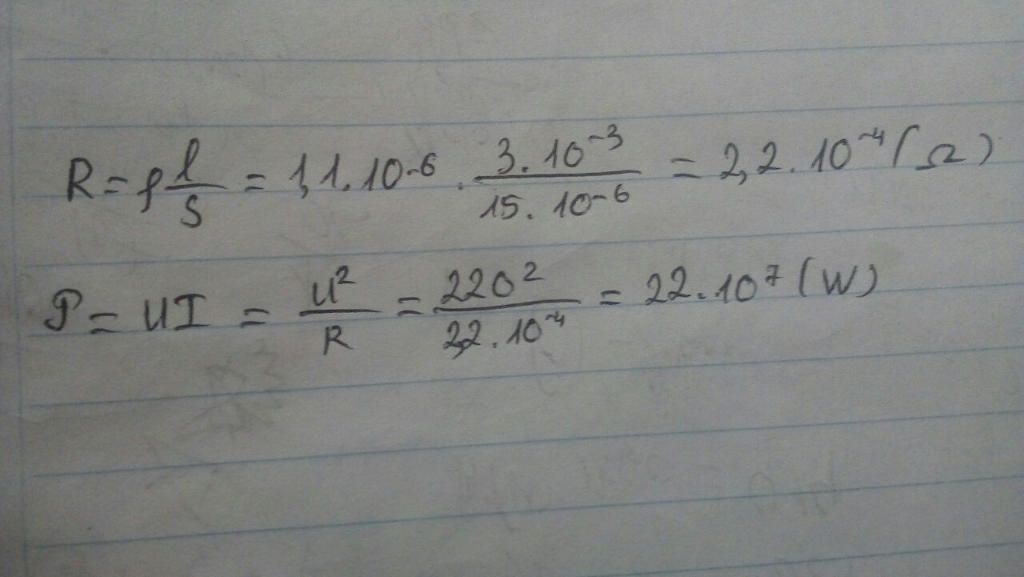 R = ρ l/S = 1,1.10^-6 . 3.10^-3/15.10^-6 = 2,2.10^-4 (Ω)
P = UI = U²/R = 220²/2,2.10^-4 = 22.10^7 (W)